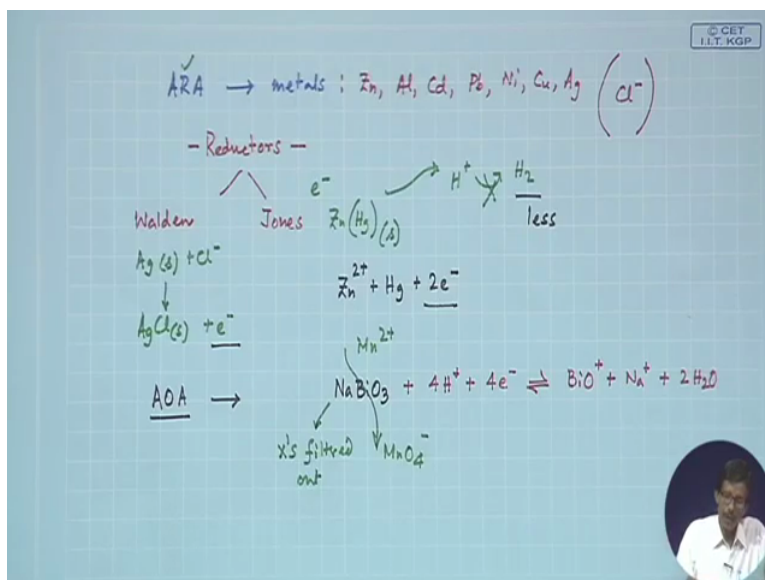 © CET
I.I.T. KGP
ARA → metals : Zn, Al, Cd, Pb, Ni, Cu, Ag (Cl⁻)
- Reductors -
Walden Jones e⁻ Zn(Hg)(s) H⁺ H₂
less
Ag(s) + Cl⁻
↓
AgCl(s) + e⁻
Zn²⁺ + Hg + 2e⁻
Mn²⁺
AOA → NaBiO₃ + 4H⁺ + 4e⁻ ⇌ BiO⁺ + Na⁺ + 2H₂O
x's filtered out
MnO₄⁻